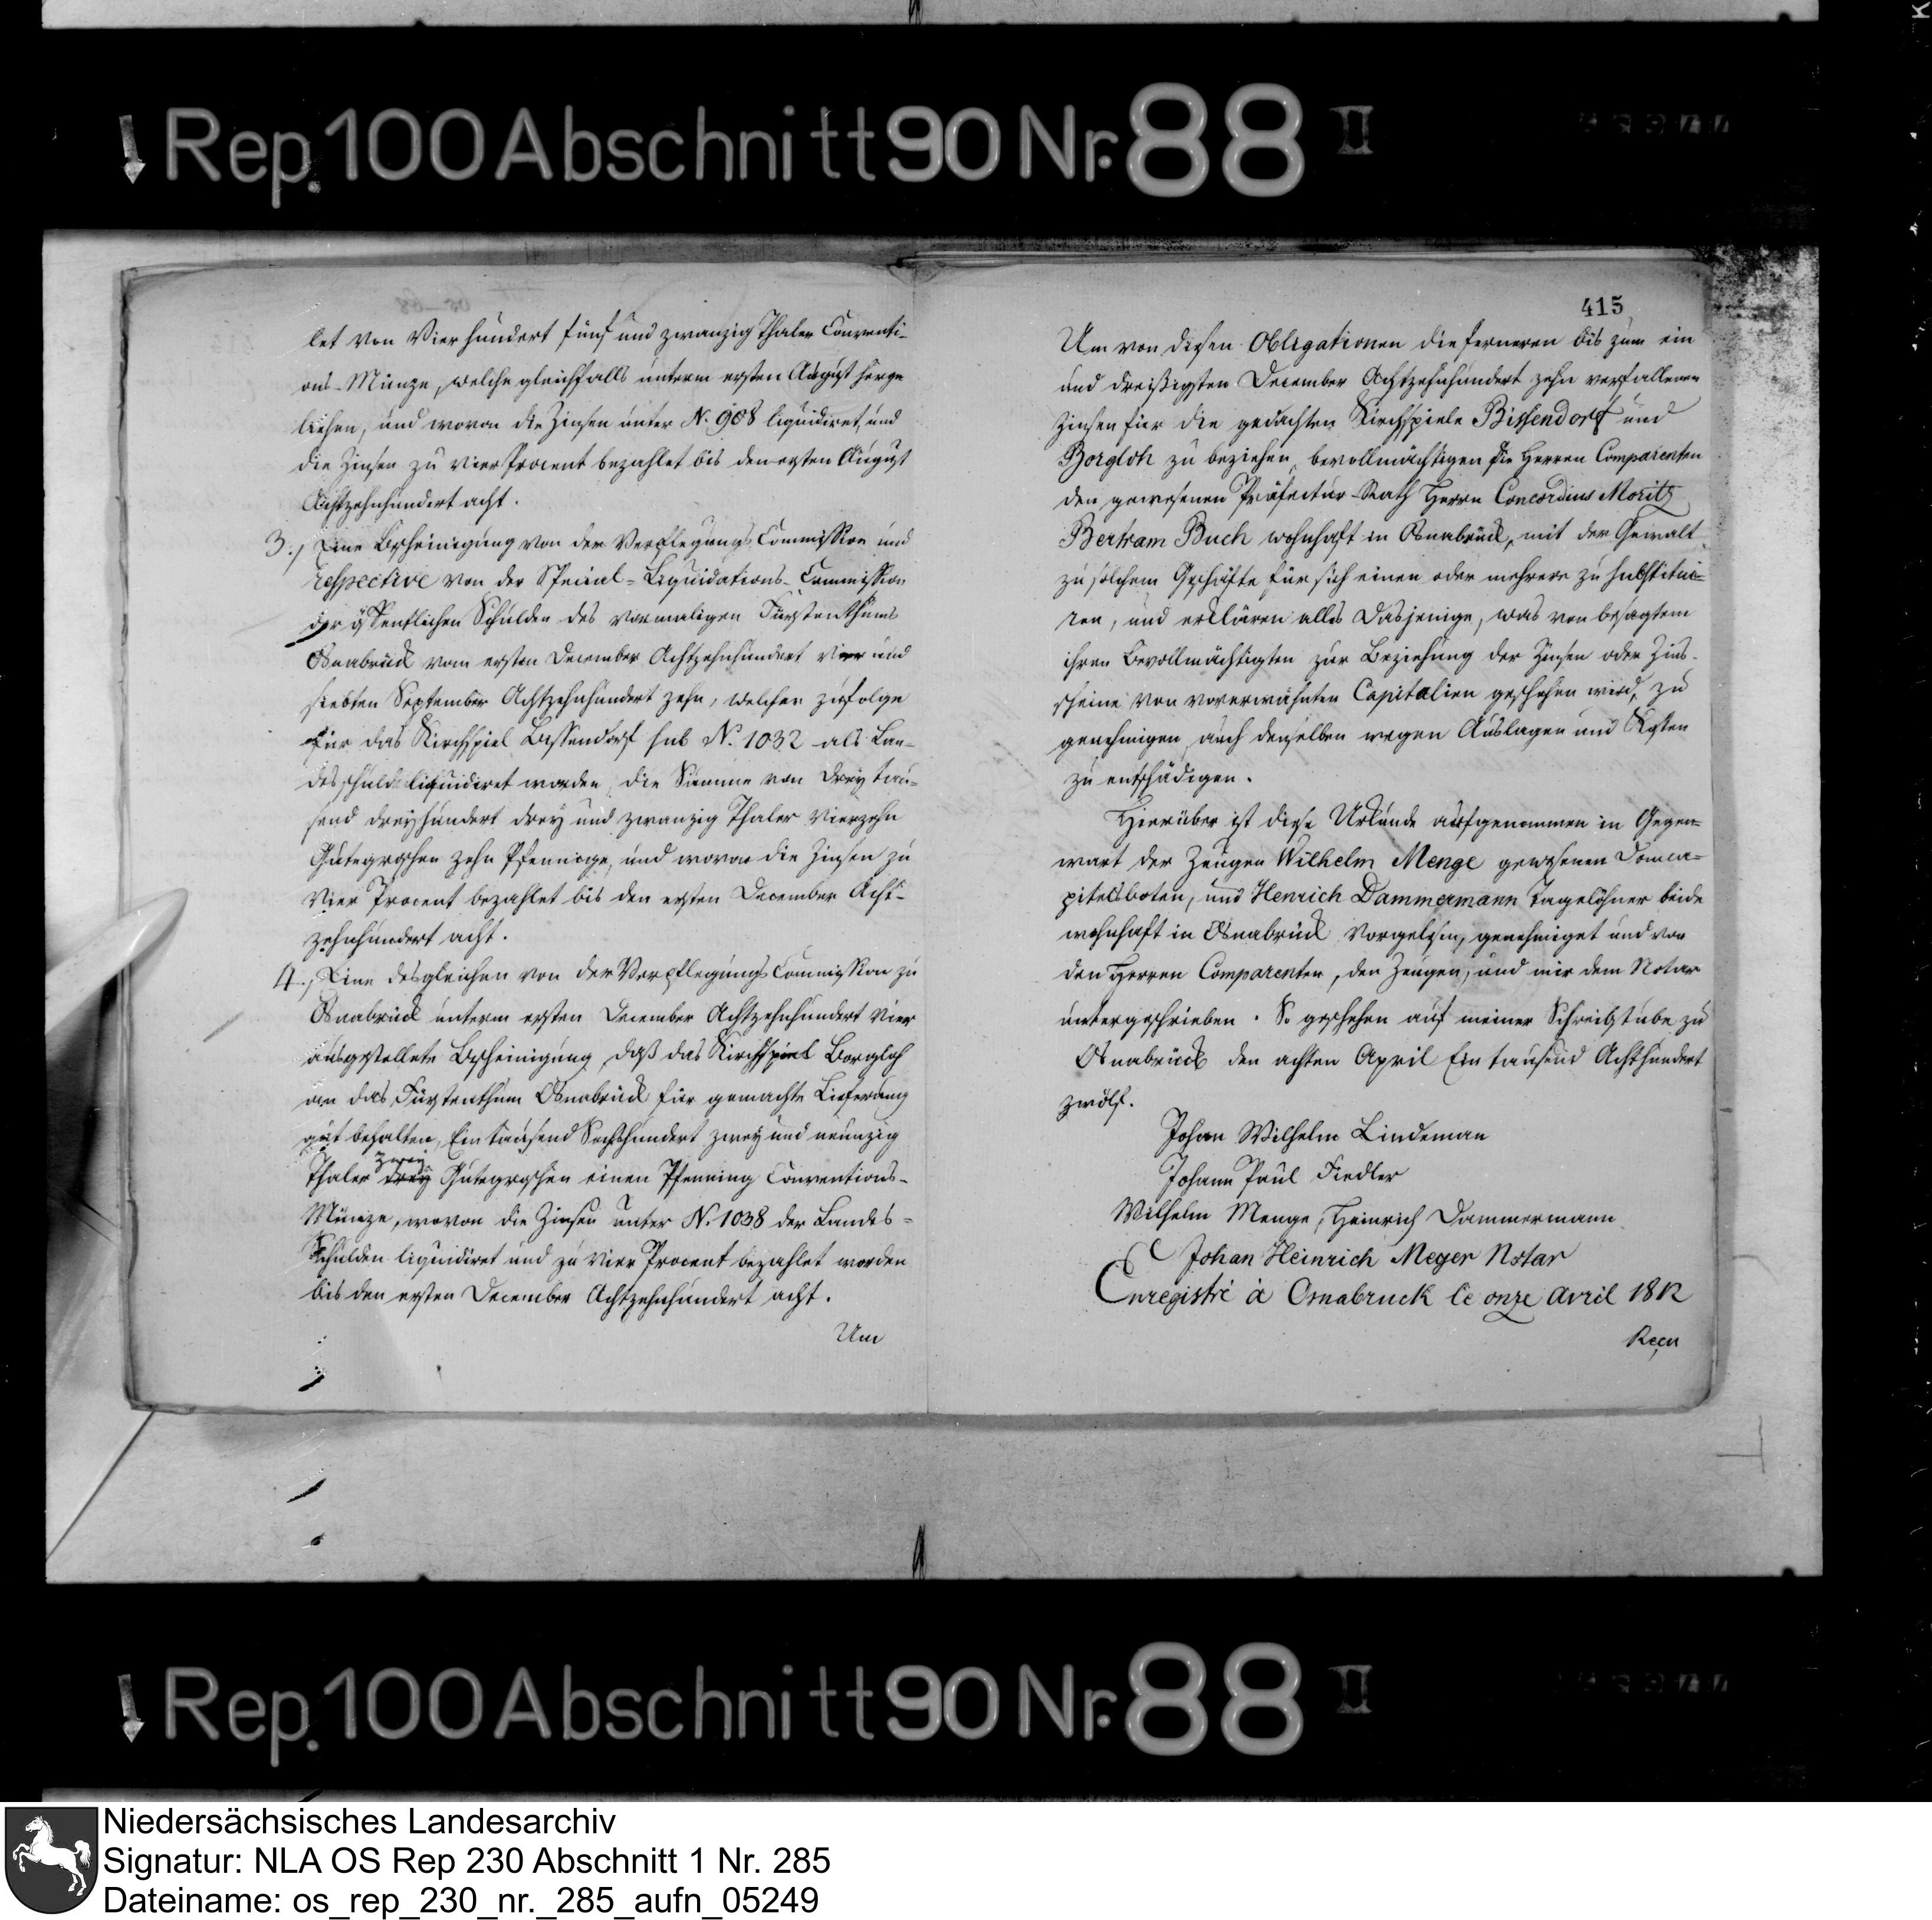 Rep. 100 Abschnitt 90 Nr. 88 II
let von Vierhundert fünf und zwanzig Thaler Conventi-
ons-Münze, welche gleichfalls unterm ersten August herge
liehen, und wovon die Zinsen unter N. 908 liquidiret, und
die Zinsen zu vier Procent bezahlet bis den ersten August
Achtzehnhundert acht.
3.) Eine Bescheinigung von der Verpflegungs Commission und
respective von der Special-Liquidations-Commission
der öffentlichen Schulden des vormaligen Fürstenthums
Osnabrück vom ersten December Achtzehnhundert vier und
siebten September Achtzehnhundert zehn, welcher zufolge
für das Kirchspiel Bissendorf sub N. 1032 als Lan-
desschuld liquidiret worden, die Summe von Drey tau-
send dreyhundert drey und zwanzig Thaler Vierzehn
Gutegroschen zehn Pfennige, und wovon die Zinsen zu
Vier Procent bezahlet bis den ersten December Acht-
zehnhundert acht.
4.) Eine desgleichen von der Verpflegungs Commission zu
Osnabrück unterm ersten December Achtzehnhundert vier
ausgestellete Bescheinigung, daß das Kirchspiel Borgloh
an das Fürstenthum Osnabrück für gemachte Lieferung
gut behalten, Ein tausend Sechshundert zwey und neunzig
zwey
Thaler drey Gutegroschen einen Pfenning Conventions-
Münze, wovon die Zinsen unter N. 1038 der Landes-
Schulden liquidiret und zu vier Procent bezahlet worden
bis den ersten December Achtzehnhundert acht.
Um
415
Um von diesen Obligationen die ferneren bis zum ein
und dreißigsten December Achtzehnhundert zehn verfallenen
Zinsen für die gedachten Kirchspiele Bissendorf und
Borgloh zu beziehen, bevollmächtigen die Herren Comparenten
den gewesenen Präfectur-Rath Herrn Concordius Moritz
Bertram Buch wohnhaft in Osnabrück, mit der Gewalt
zu solchem Geschäfte für sich einen oder mehrere zu substitui-
ren, und erklären alles dasjenige, was von besagtem
ihren Bevollmächtigten zur Beziehung der Zinsen oder Zins-
scheine von vorerwähnten Capitalien geschehen wird, zu
genehmigen, auch denselben wegen Auslagen und Kosten
zu entschädigen.
Hierüber ist diese Urkunde aufgenommen in Gegen-
wart der Zeugen Wilhelm Menge gewesenen Domca-
pitelsboten, und Henrich Dammermann Tagelöhner beide
wohnhaft in Osnabrück vorgelesen, genehmiget und von
den Herren Comparenten, den Zeugen, und mir dem Notar
untergeschrieben. So geschehen auf meiner Schreibstube zu
Osnabrück den achten April Ein tausend Achthundert
zwölf.
Johan Wilhelm Lindeman
Johann Paul Fiedler
Wilhelm Menge, Heinrich Dammermann
Johan Heinrich Meyer Notar
Enregistré à Osnabruck le onze avril 1812
Reçu
Rep. 100 Abschnitt 90 Nr. 88 II
Niedersächsisches Landesarchiv
Signatur: NLA OS Rep 230 Abschnitt 1 Nr. 285
Dateiname: os_rep_230_nr._285_aufn_05249